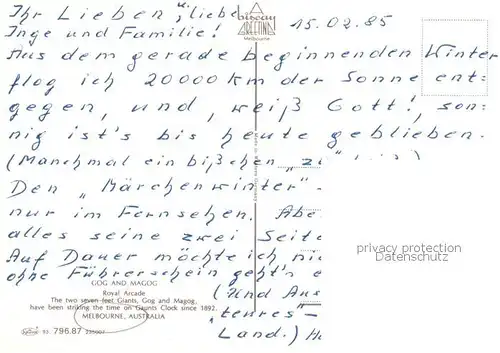 Ihr Lieben u. liebe
Inge und Familie!
biscay
GREETINGS
Melbourne
15.02.85
Aus dem gerade beginnenden Winter
flog ich 20000 km der Sonne ent-
gegen, und, weiß Gott!, son-
nig ist's bis heute geblieben.
(Manchmal ein bißchen „zu"
Den „Märchenwinter"
nur im Fernsehen. Abe
alles seine zwei Seite
Auf Dauer möchte ich nic
ohne Führerschein geht's e
(Und Aus
„teures"-
Land.) Ha
privacy protection
Datenschutz
GOG AND MAGOG
Royal Arcade
The two seven feet Giants, Gog and Magog,
have been striking the time on Gaunts Clock since 1892.
MELBOURNE, AUSTRALIA
83 796.87 335007